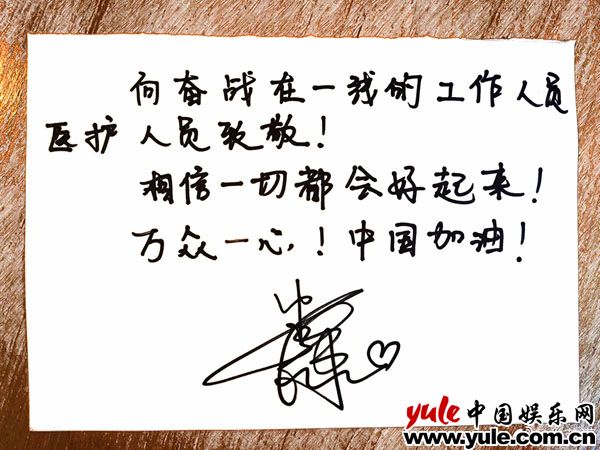 向奋战在一线的工作人员
医护人员致敬!
相信一切都会好起来!
万众一心!中国加油!
yule中国娱乐网
www.yule.com.cn